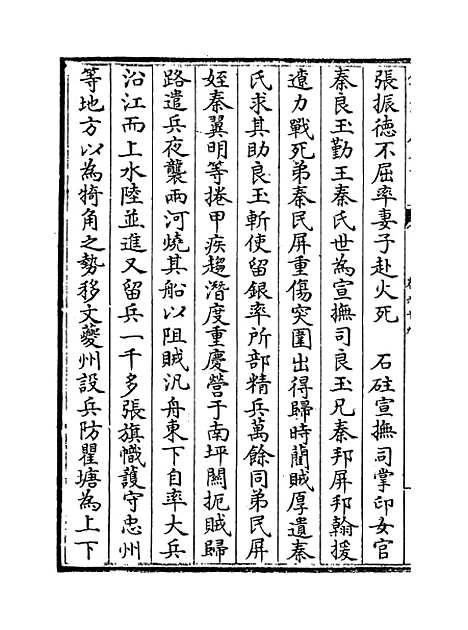 張振德不屈率妻子赴火死　石砫宣撫司掌印女官
秦良玉勤王秦氏世為宣撫司良玉兄秦邦屏邦翰援
遼力戰死弟秦民屏重傷突圍出得歸時藺賊厚遺秦
氏求其助良玉斬使留銀率所部精兵萬餘同弟民屏
姪秦翼明等捲甲疾趨潛度重慶營于南坪闗扼賊歸
路遣兵夜襲兩河燒其船以阻賊汎舟東下自率大兵
沿江而上水陸並進又留兵一千多張旗幟護守忠州
等地方以為犄角之勢移文夔州設兵防瞿塘為上下